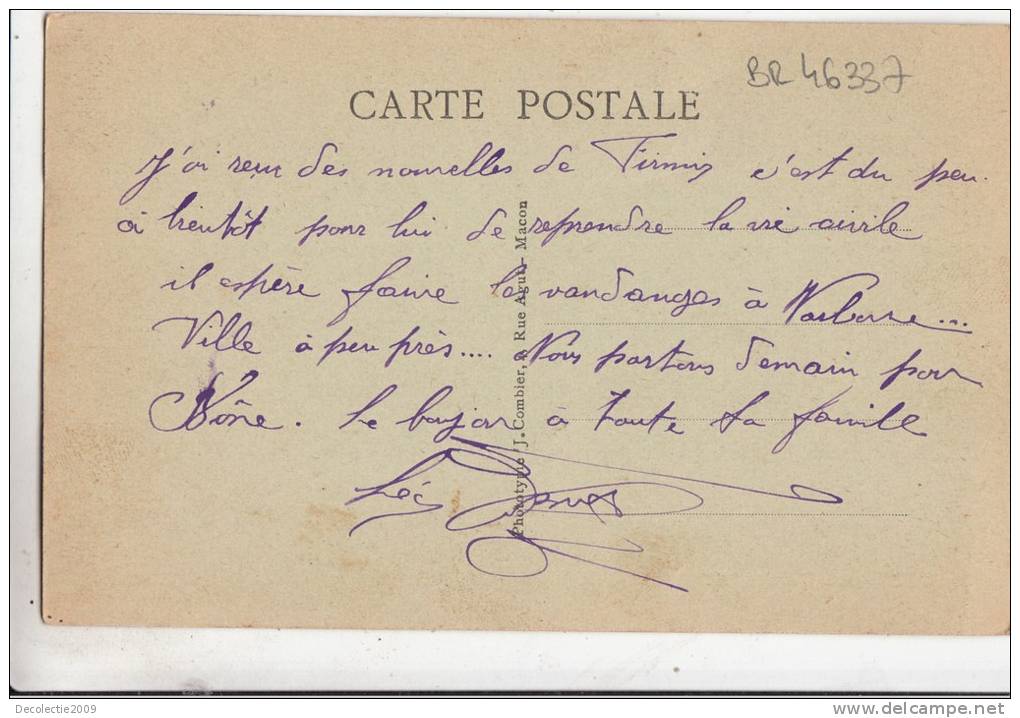 BR 46337
CARTE POSTALE
J'ai reçu des nouvelles de Firmin c'est du peu
à bientôt pour lui de reprendre la vie civile
il espère faire les vandanges à Narbonne...
Ville à peu près.... Nous partons demain pour
Bône. Le bonjour à toute ta famille
Phototypie J. Combier, Rue Agut - Macon
Decolectie2009
www.delcampe.net